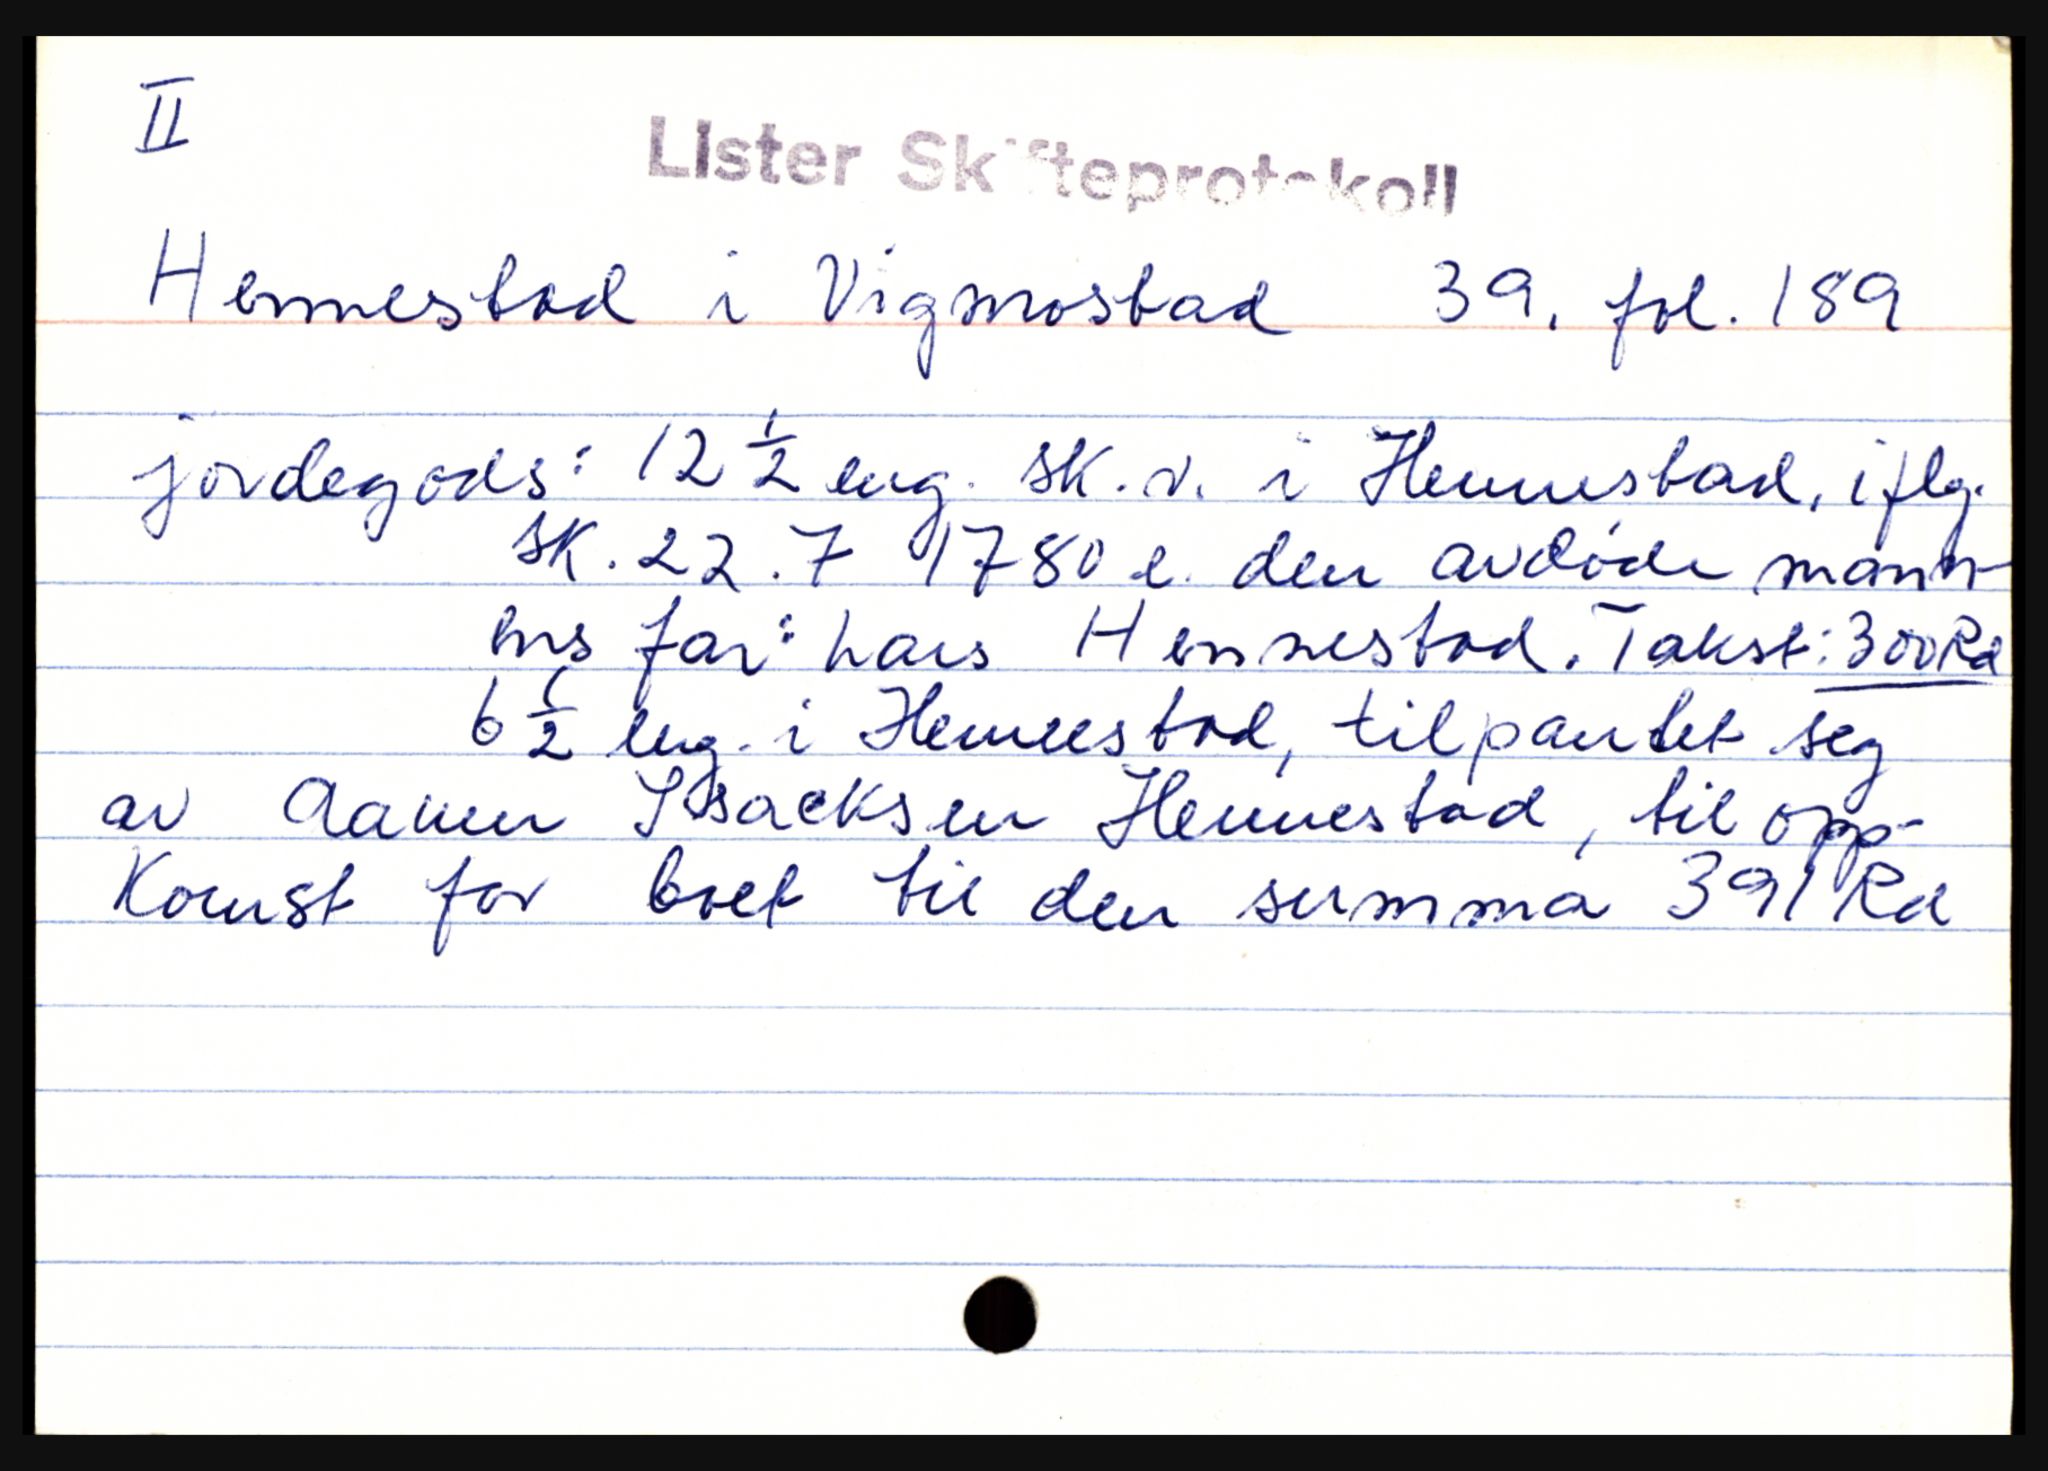 II
Lister Skifteprotokoll
Hennestad i Vigmostad 39, fol. 189
jordegods: 12 1/2 eng. sk. v. i Hennestad, iflg.
sk. 22.7 1780 e. den avdøde mann-
ens far: Lars Hennestad. Takst: 300 Rd
6 1/2 eng. i Hennestad, tilpantet seg
av Aanen Isacksen Hennestad, til opp-
komst for boet til den summa 391 Rd